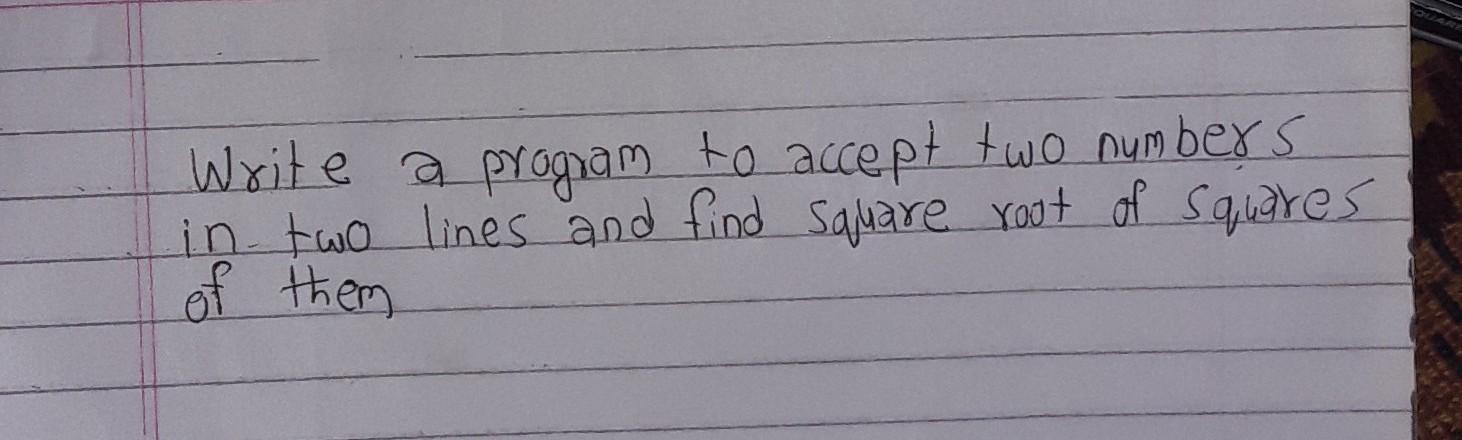 Write a program to accept two numbers
in two lines and find square root of squares
of them